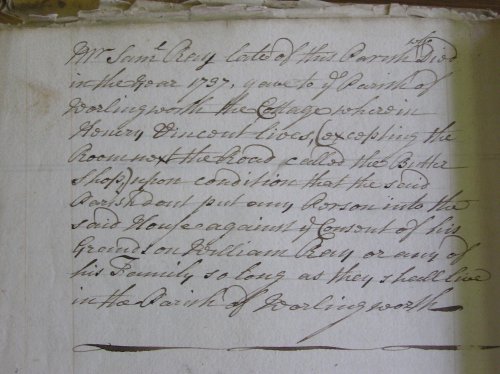 Mr. Saml. Ray late of this Parish who Died
in the Year 1737, gave to ye Parish of
Worlingworth the Cottage wherein
Henry Vincent lives, (excepting the
Room next the Road called the Butter
Shop,) upon condition that the said
Parish dont put any Person into the
said House against ye Consent of his
Grandson William Ray, or any of
his Family so long as they shall live
in the Parish of Worlingworth